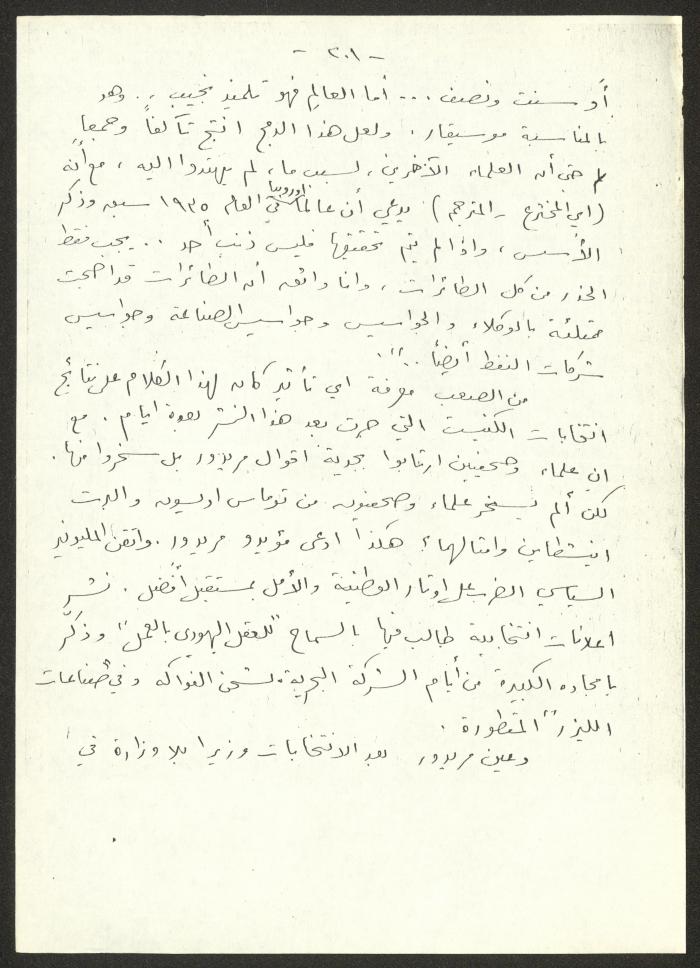 - ٢٠١ -
أو سنت ونصف ... أما العالم فهو تلميذ نجيب .. وهو
بالمناسبة موسيقار . ولعل هذا الدمج انتج تآلفاً وجمعا
لم حتى أن العلماء الآخرين ، لسبب ما ، لم يهتدوا اليه ، مع أنه
(اي المخترع - المترجم) يدعي أن عالما اوروبيا في العام ١٩٣٥ سبقه وذكر
الأسس ، واذا لم يتم تحقيقها فليس ذنب أحد .. يجب فقط
الحذر من كل الطائرات ، وانا واثق أن الطائرات قد اضحت
ممتلئة بالوكلاء والجواسيس وجواسيس الصناعة وجواسيس
شركات النفط أيضاً .. "
من الصعب معرفة اي تأثير كان لهذا الكلام على نتائج
انتخابات الكنيست التي جرت بعد هذا النشر بعدة ايام . مع
ان علماء وصحفيين ارتابوا بجدية اقوال مريدور بل سخروا منها .
لكن ألم يسخر علماء وصحفيون من توماس اديسون والبرت
اينشطاين وامثالهما ؟ هكذا ادعى مؤيدو مريدور . واتقن المليونير
السياسي الضرب على اوتار الوطنية والأمل بمستقبل أفضل . نشر
اعلانات انتخابية طالب فيها بالسماح "للعقل اليهودي بالعمل" وذكّر
بامجاده الكبيرة من أيام الشركة البحرية لشحن الفواكه وفي "صناعات
الليزر" المتطورة .
وعين مريدور بعد الانتخابات وزيرا بلا وزارة في